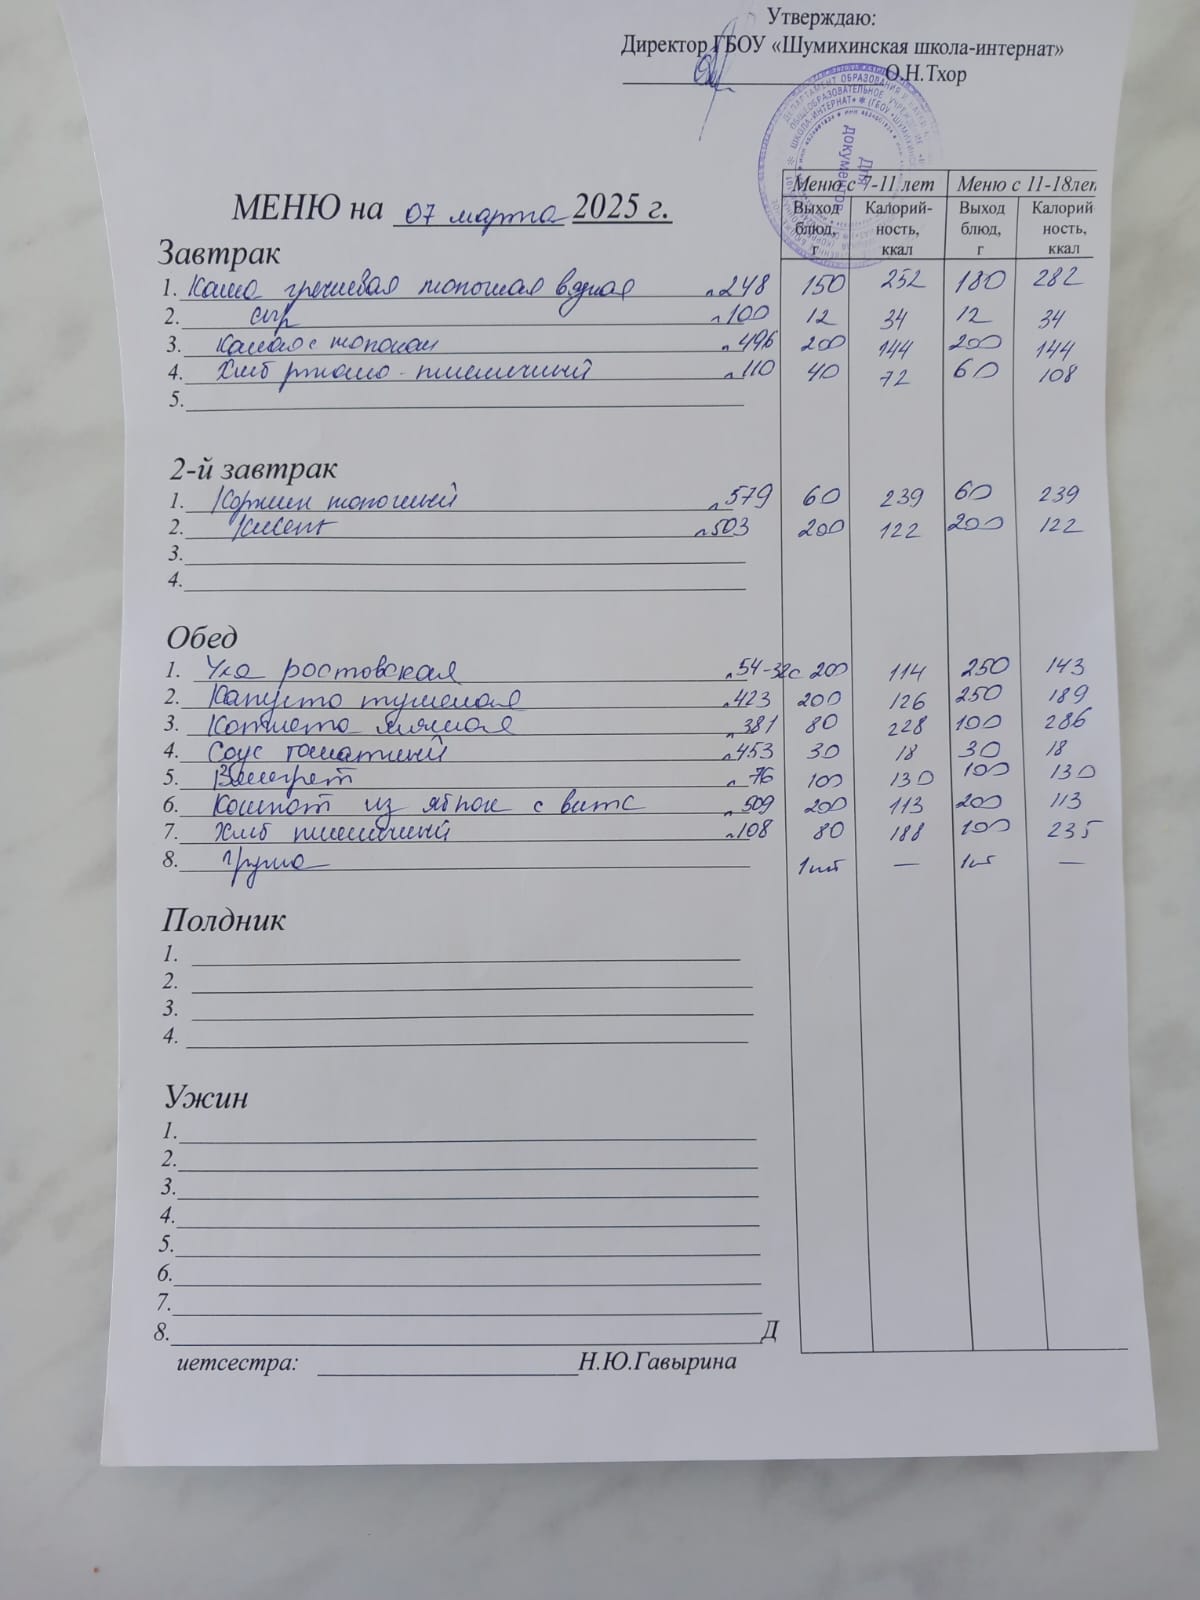 Утверждаю:
Директор ГБОУ «Шумихинская школа-интернат»
О.Н.Тхор
Для документов
МЕНЮ на 07 марта 2025 г.
Меню с 7-11 лет Меню с 11-18лет
Выход блюд, г Калорий-ность, ккал Выход блюд, г Калорий ность, ккал
Завтрак
1. Каша гречневая молочная вязкая л248 150 252 180 282
2. сыр л100 12 34 12 34
3. Какао с молоком л496 200 144 200 144
4. Хлеб ржано-пшеничный л110 40 72 60 108
5.
2-й завтрак
1. Коржик молочный л579 60 239 60 239
2. Кисель л503 200 122 200 122
3.
4.
Обед
1. Уха ростовская л54-32с 200 114 250 143
2. Капуста тушеная л423 200 126 250 189
3. Котлета мясная л381 80 228 100 286
4. Соус томатный л453 30 18 30 18
5. Винегрет л76 100 130 100 130
6. Компот из яблок с вит С л509 200 113 200 113
7. Хлеб пшеничный л108 80 188 100 235
8. Груша 1шт — 1шт —
Полдник
1.
2.
3.
4.
Ужин
1.
2.
3.
4.
5.
6.
7.
8. Д
иетсестра: Н.Ю.Гавырина